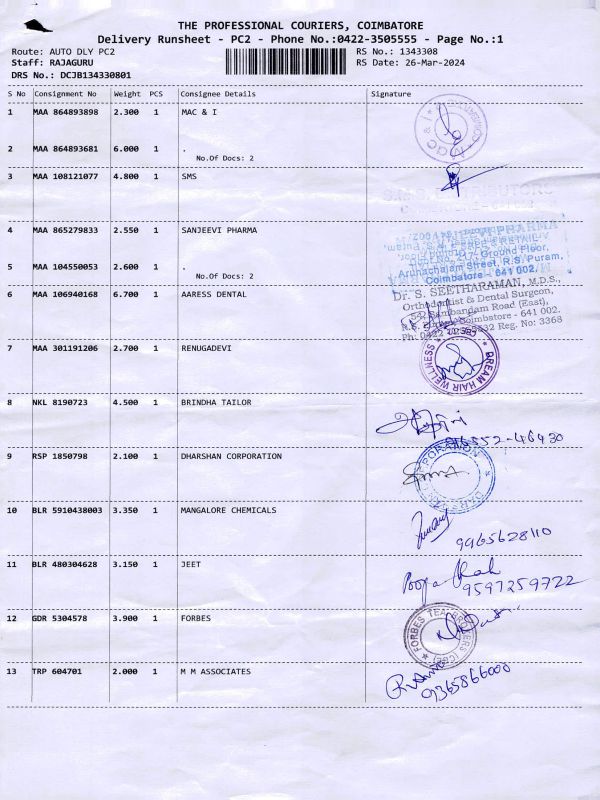 THE PROFESSIONAL COURIERS, COIMBATORE
Delivery Runsheet - PC2 - Phone No.:0422-3505555 - Page No.:1
Route: AUTO DLY PC2 RS No.: 1343308
Staff: RAJAGURU RS Date: 26-Mar-2024
DRS No.: DCJB134330801
S No Consignment No Weight PCS Consignee Details Signature
1 MAA 864893898 2.300 1 MAC & I
2 MAA 864893681 6.000 1 .
No.Of Docs: 2
3 MAA 108121077 4.800 1 SMS
4 MAA 865279833 2.550 1 SANJEEVI PHARMA
Ground Floor,
Arunachalam Street, R.S. Puram,
Coimbatore - 641 002.
5 MAA 104550053 2.600 1 .
No.Of Docs: 2
6 MAA 106940168 6.700 1 AARESS DENTAL
Dr. S. SEETHARAMAN, M.D.S.,
Orthodontist & Dental Surgeon,
Sambandam Road (East),
Coimbatore - 641 002.
Reg. No: 3368
7 MAA 301191206 2.700 1 RENUGADEVI
DREAM HAIR WELLNESS
8 NKL 8190723 4.500 1 BRINDHA TAILOR
9 RSP 1850798 2.100 1 DHARSHAN CORPORATION
10 BLR 5910438003 3.350 1 MANGALORE CHEMICALS
9965628110
11 BLR 480304628 3.150 1 JEET
Pooja Shah
9597259722
12 GDR 5304578 3.900 1 FORBES
FORBES TEA BROKERS (CBE)
13 TRP 604701 2.000 1 M M ASSOCIATES
9365866000